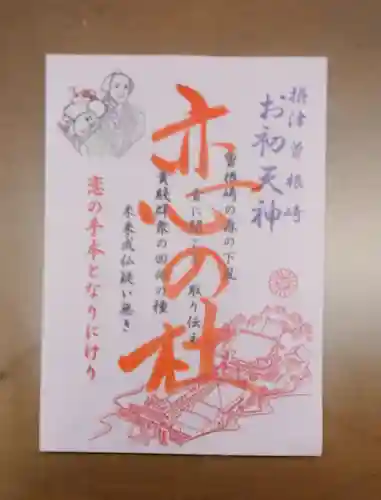 摂津曽根崎
お初天神
恋の杜
曽根崎の森の下風
音に聞こえ 取り伝え
貴賎群衆の回向の種
未来成仏疑い無き
恋の手本となりにけり